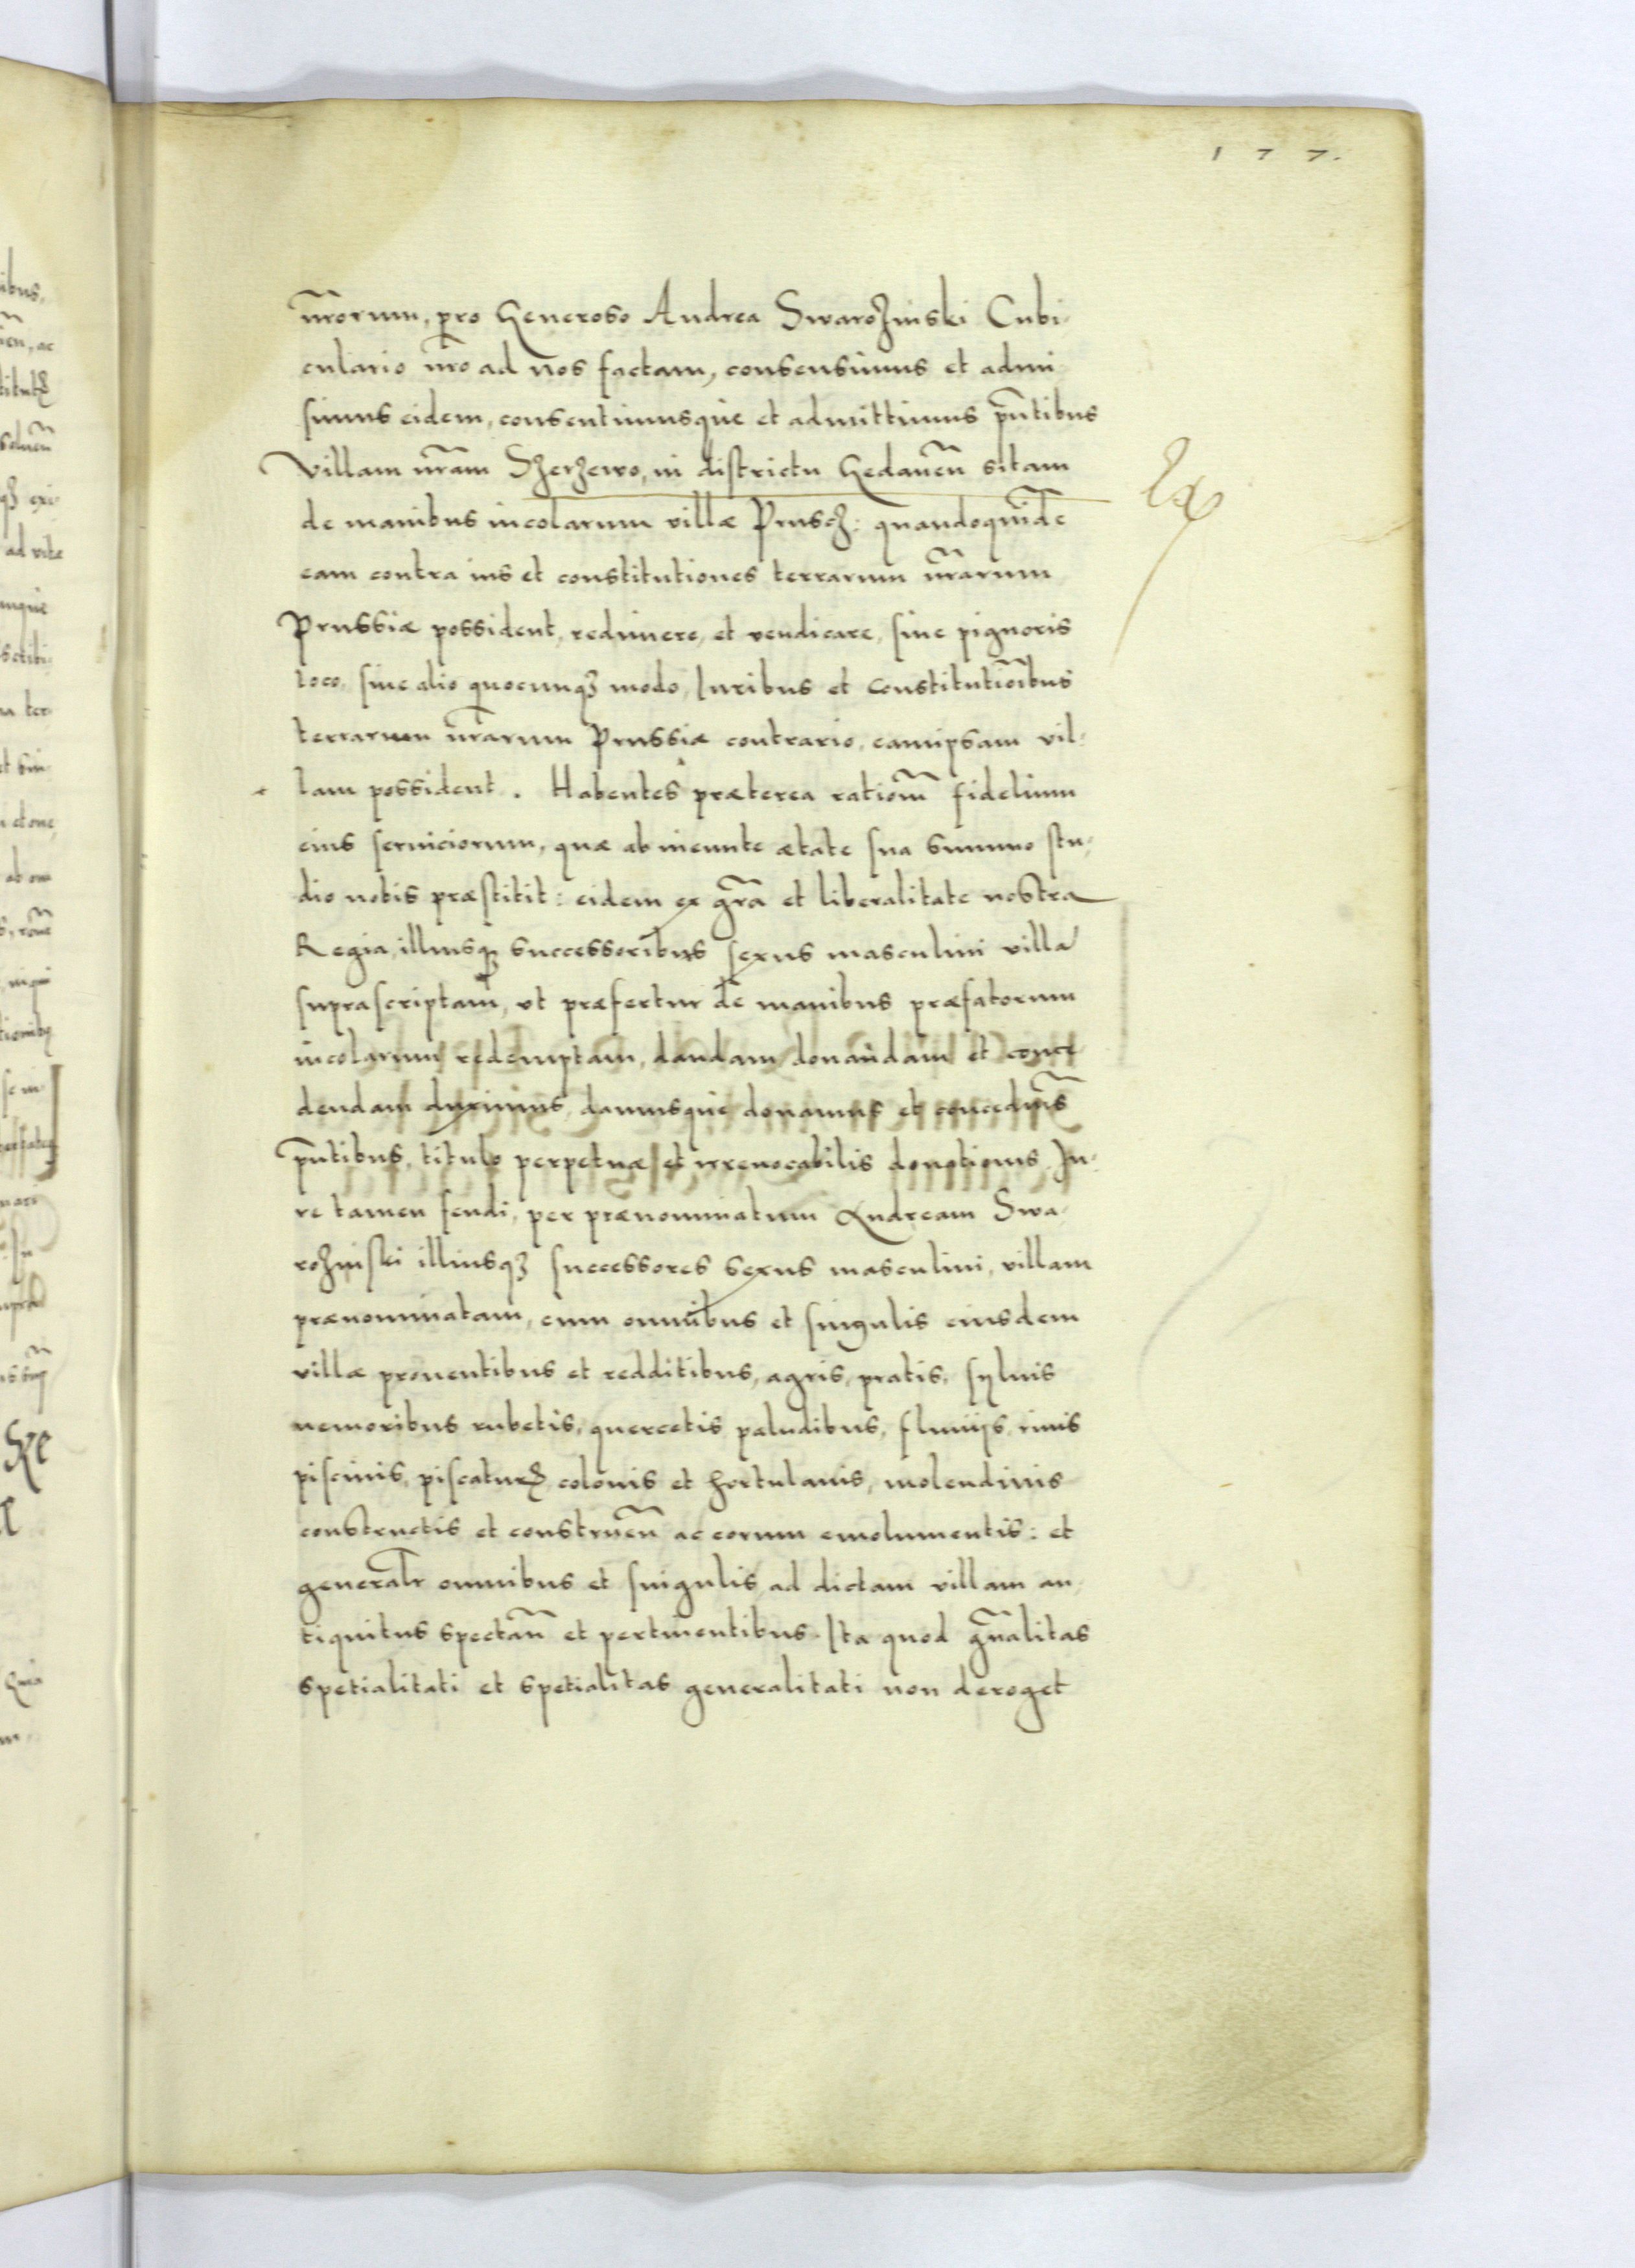 177.
nr̃orum, pro Generoso Andrea Swaroziński Cubi-
culario nr̃o ad nos factam, consensimus et admi
simus eidem, consentimusque et admittimus pñtibus
Villam nr̃am Szerzewo, in districtu Gedaneñ sitam
Ex
de manibus incolarum villæ Prusch: quandoquidẽ
eam contra ius et constitutiones terrarum nr̃arum
Prussiæ possident, redimere, et vendicare, siue pignoris
loco, siue alio quocunqꝫ modo, Iuribus et Constitutiõibus
terrarum nr̃arum Prussiæ contrario, eamipsam vil-
lam possident. Habentes præterea rationm̃ fidelium
eius seruiciorum, quæ ab ineunte ætate sua summo stu-
dio nobis præstitit: eidem ex gr̃a et liberalitate nostra
Regia, illiusqꝫ successoribus sexus masculini villã
suprascriptam, vt præfertur de manibus præfatorum
incolarum redemptam, dandam donandam et conce
dendam duximus, damusque donamus et concedims̃
pñtibus, titulo perpetuæ et irreuocabilis donationis. Iu-
re tamen feudi, per prænominatum Andream Swa-
rozinski illiusqꝫ successores sexus masculini, villam
prænominatam, cum omnibus et singulis eiusdem
villæ prouentibus et redditibus, agris, pratis, syluis
nemoribus rubetis, quercetis paludibus, fluuijs, riuis
piscinis, piscaturꝭ colonis et hortulanis, molendinis
constructis et construeñ ac eorum emolumentis: et
generalr̃ omnibus et singulis ad dictam villam an-
tiquitus spectañ et pertinentibus. Ita quod gñalitas
spetialitati et spetialitas generalitati non deroget